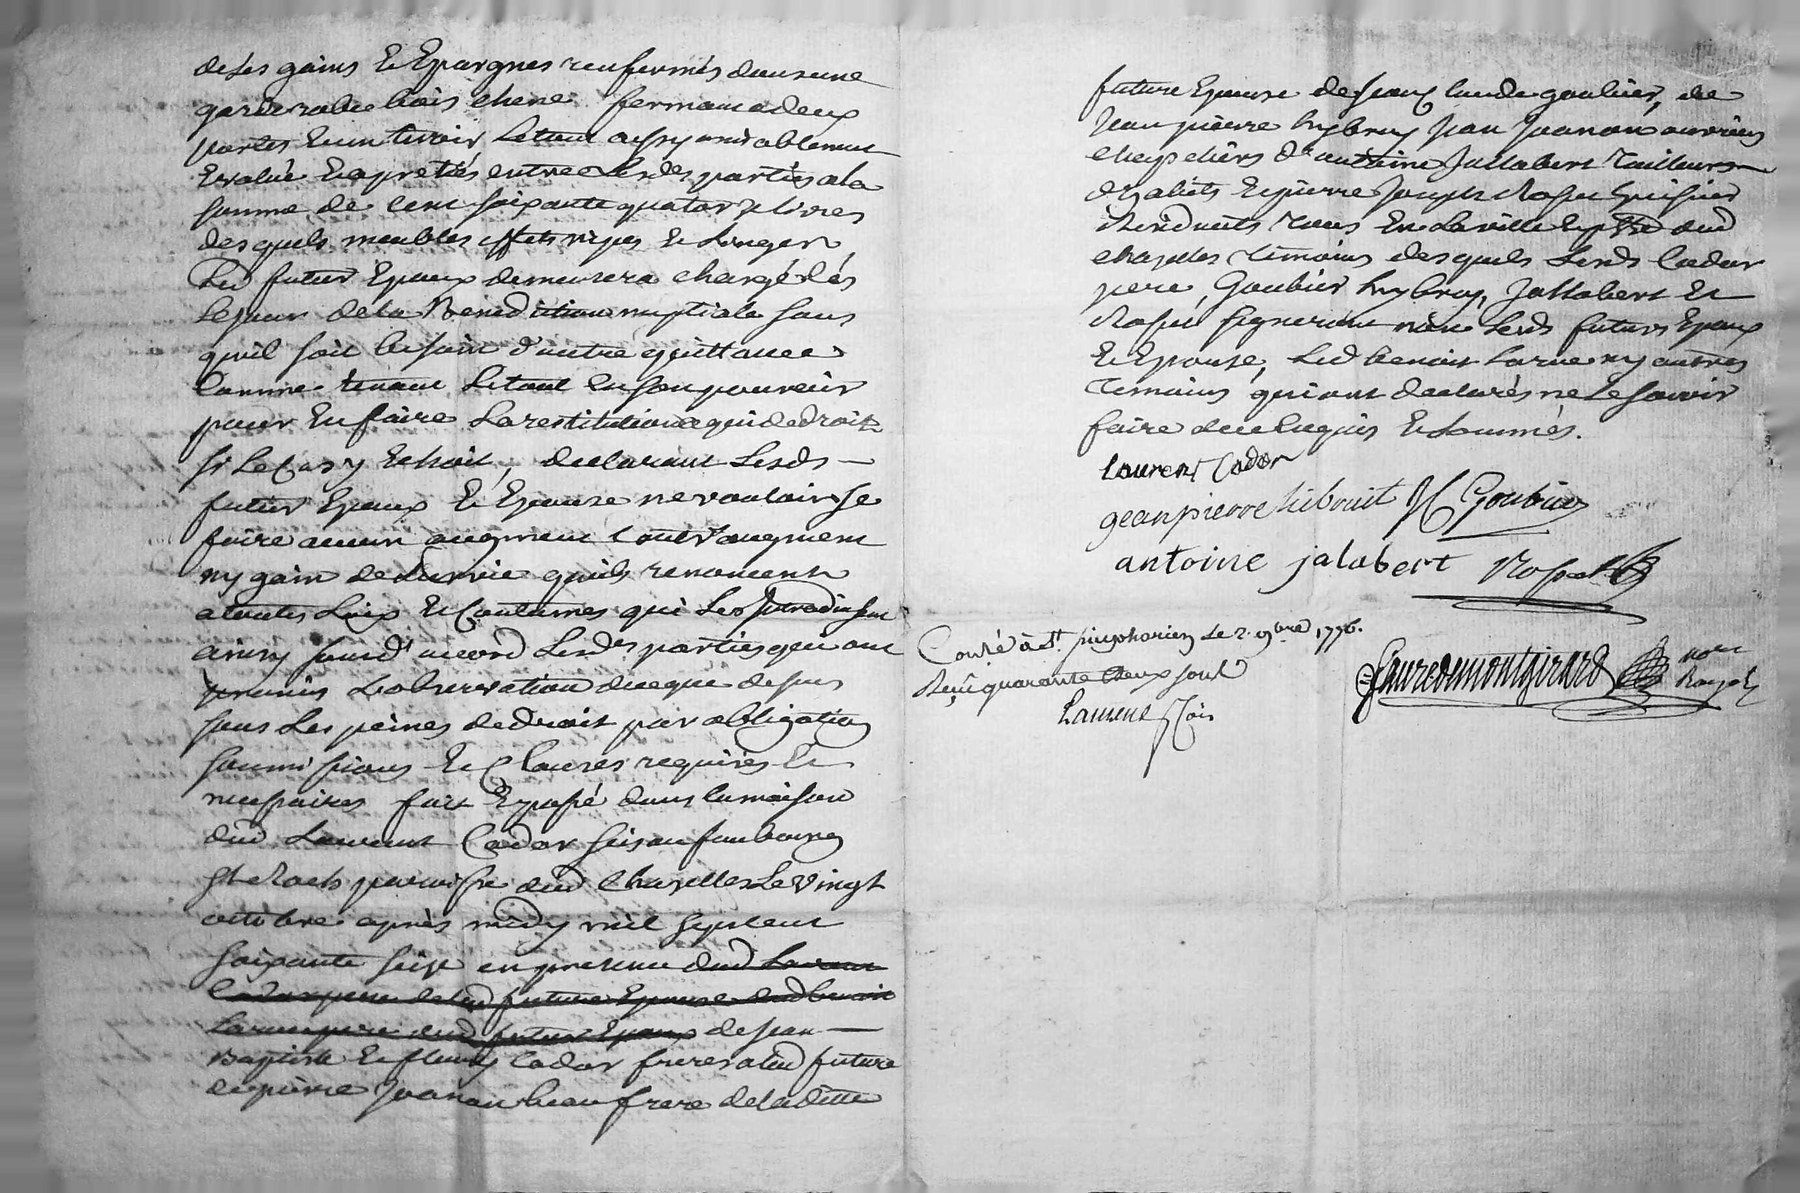 de ses gains & Epargnes renfermés dans une
garderobe bois chene fermant a deux
portes & un tiroir Le tout aussy amiablement
Evalué & apretiés entre Lesdes parties a la
somme de cent soixante quatorze livres
des quels meubles effets nipes & Linges
Led futur Epoux demeurera chargé dés
Le jour de la Benediction nuptiale sans
quil soit besoin d'autre quittance
Comme tenant Le tout en son pouvoir
pour En faire La restitution a qui de droit
si Le Cas y Echoit, declarant Lesds
futur Epoux & Epouse ne vouloir se
faire aucun augment Contr'augment
ny gain de survie quils renoncent
a toutes Loix & Coutumes qui Les
ainsy sont d'accord Lesdes parties qui ont
promis Lobservation de ce que dessus
sous Les peines de droit par obligation
soumissions & Clauses requises &
necessaires fait & passé dans la maison
dud Laurent Cador sis au faubourg
St Roch parroisse dud Chazelles Le vingt
octobre après midy mil sept cent
soixante seize en presence dud Laurent
Cador pere de lad future Epouse dud benoit
Larue pere dud futur Epoux de jean
Baptiste & fleury Cador freres a lad future
de pierre Joanon beau frere de laditte
future Epouse de jean Claude goubier, de
jean pierre hybroy jean Joanon ouvriers
chapeliers d'antoine Jallabert Tailleurs
d'habits & pierre Joseph huissier
Residents tous En La ville & psse dud
chazelles temoins desquels Lesds Cador
pere, Goubier hybroy, Jallabert &
signeront non Lesds futurs Epoux
& Epouse, Led benoit Larue ny autres
Temoins qui ont declarés ne Le savoir
faire de ce Enquis & Sommés.
laurent Cador
jeanpierre hibroit JC Goubier
antoine jalabert
Conlé à St. simphorien Le 2. 9bre 1776.
Reçû quarante deux sols
Laurens
fauredemontgirard nore
Royal